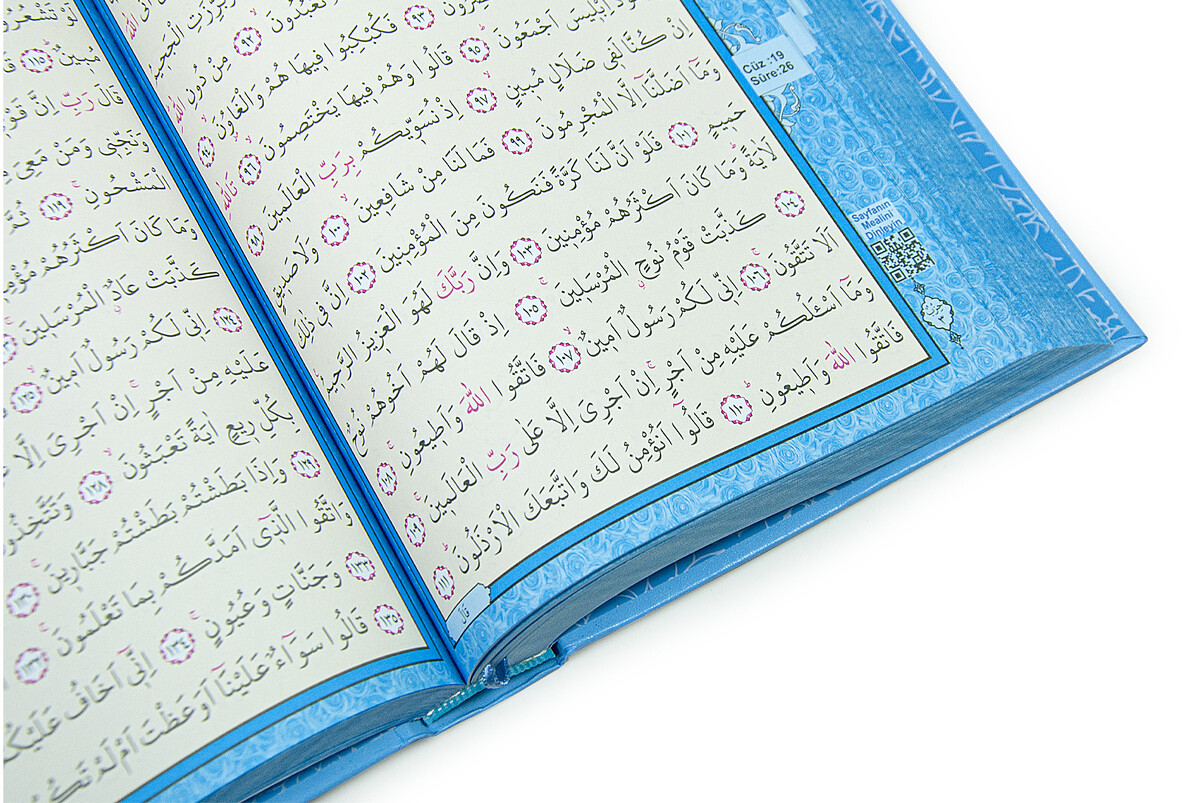 بُرِّزَتِ الْجَحِيمُ
تَعْبُدُونَ ﴿٩٢﴾ مِنْ دُونِ اللّٰهِ
﴿٩٣﴾ فَكُبْكِبُوا فِيهَا هُمْ وَالْغَاوُنَ ﴿٩٤﴾
اِبْلِيسَ اَجْمَعُونَ ﴿٩٥﴾ قَالُوا وَهُمْ فِيهَا يَخْتَصِمُونَ ﴿٩٦﴾ تَاللّٰهِ
اِنْ كُنَّا لَفِى ضَلَالٍ مُبِينٍ ﴿٩٧﴾ اِذْ نُسَوِّيكُمْ بِرَبِّ الْعَالَمِينَ ﴿٩٨﴾
وَمَٓا اَضَلَّنَٓا اِلَّا الْمُجْرِمُونَ ﴿٩٩﴾ فَمَا لَنَا مِنْ شَافِعِينَ ﴿١٠٠﴾ وَلَا صَدِيقٍ
حَمِيمٍ ﴿١٠١﴾ فَلَوْ اَنَّ لَنَا كَرَّةً فَنَكُونَ مِنَ الْمُؤْمِنِينَ ﴿١٠٢﴾ اِنَّ فِى ذٰلِكَ
لَاٰيَةً وَمَا كَانَ اَكْثَرُهُمْ مُؤْمِنِينَ ﴿١٠٣﴾ وَاِنَّ رَبَّكَ لَهُوَ الْعَزِيزُ الرَّحِيمُ
﴿١٠٤﴾ كَذَّبَتْ قَوْمُ نُوحٍ الْمُرْسَلِينَ ﴿١٠٥﴾ اِذْ قَالَ لَهُمْ اَخُوهُمْ نُوحٌ
اَلَا تَتَّقُونَ ﴿١٠٦﴾ اِنِّى لَكُمْ رَسُولٌ اَمِينٌ ﴿١٠٧﴾ فَاتَّقُوا اللّٰهَ وَاَطِيعُونِ ﴿١٠٨﴾
وَمَٓا اَسْـَٔلُكُمْ عَلَيْهِ مِنْ اَجْرٍ اِنْ اَجْرِىَ اِلَّا عَلٰى رَبِّ الْعَالَمِينَ ﴿١٠٩﴾
فَاتَّقُوا اللّٰهَ وَاَطِيعُونِ ﴿١١٠﴾ قَالُٓوا اَنُؤْمِنُ لَكَ وَاتَّبَعَكَ الْاَرْذَلُونَ ﴿١١١﴾
قَالَ
Cüz :19
Sûre:26
Sayfanın
Mealini
Dinleyin
لَوْ تَشْعُرُونَ
مُبِينٌ ﴿١١٥﴾
قَالَ رَبِّ اِنَّ
وَنَجِّنِى وَمَنْ مَعِىَ
الْمَشْحُونِ ﴿١١٩﴾ ثُمَّ
وَمَا كَانَ اَكْثَرُهُمْ
كَذَّبَتْ عَادٌ الْمُرْسَلِينَ
﴿١٢٤﴾ اِنِّى لَكُمْ رَسُولٌ اَمِينٌ ﴿١٢٥﴾
عَلَيْهِ مِنْ اَجْرٍ اِنْ اَجْرِىَ اِلَّا
بِكُلِّ رِيعٍ اٰيَةً تَعْبَثُونَ ﴿١٢٨﴾ وَتَتَّخِذُونَ
﴿١٢٩﴾ وَاِذَا بَطَشْتُمْ بَطَشْتُمْ جَبَّارِينَ ﴿١٣٠﴾
وَاتَّقُوا الَّذِٓى اَمَدَّكُمْ بِمَا تَعْلَمُونَ ﴿١٣٢﴾
﴿١٣٣﴾ وَجَنَّاتٍ وَعُيُونٍ ﴿١٣٤﴾ اِنِّٓى اَخَافُ عَلَيْكُمْ
﴿١٣٥﴾ قَالُوا سَوَٓاءٌ عَلَيْنَٓا اَوَعَظْتَ اَمْ لَمْ تَكُنْ